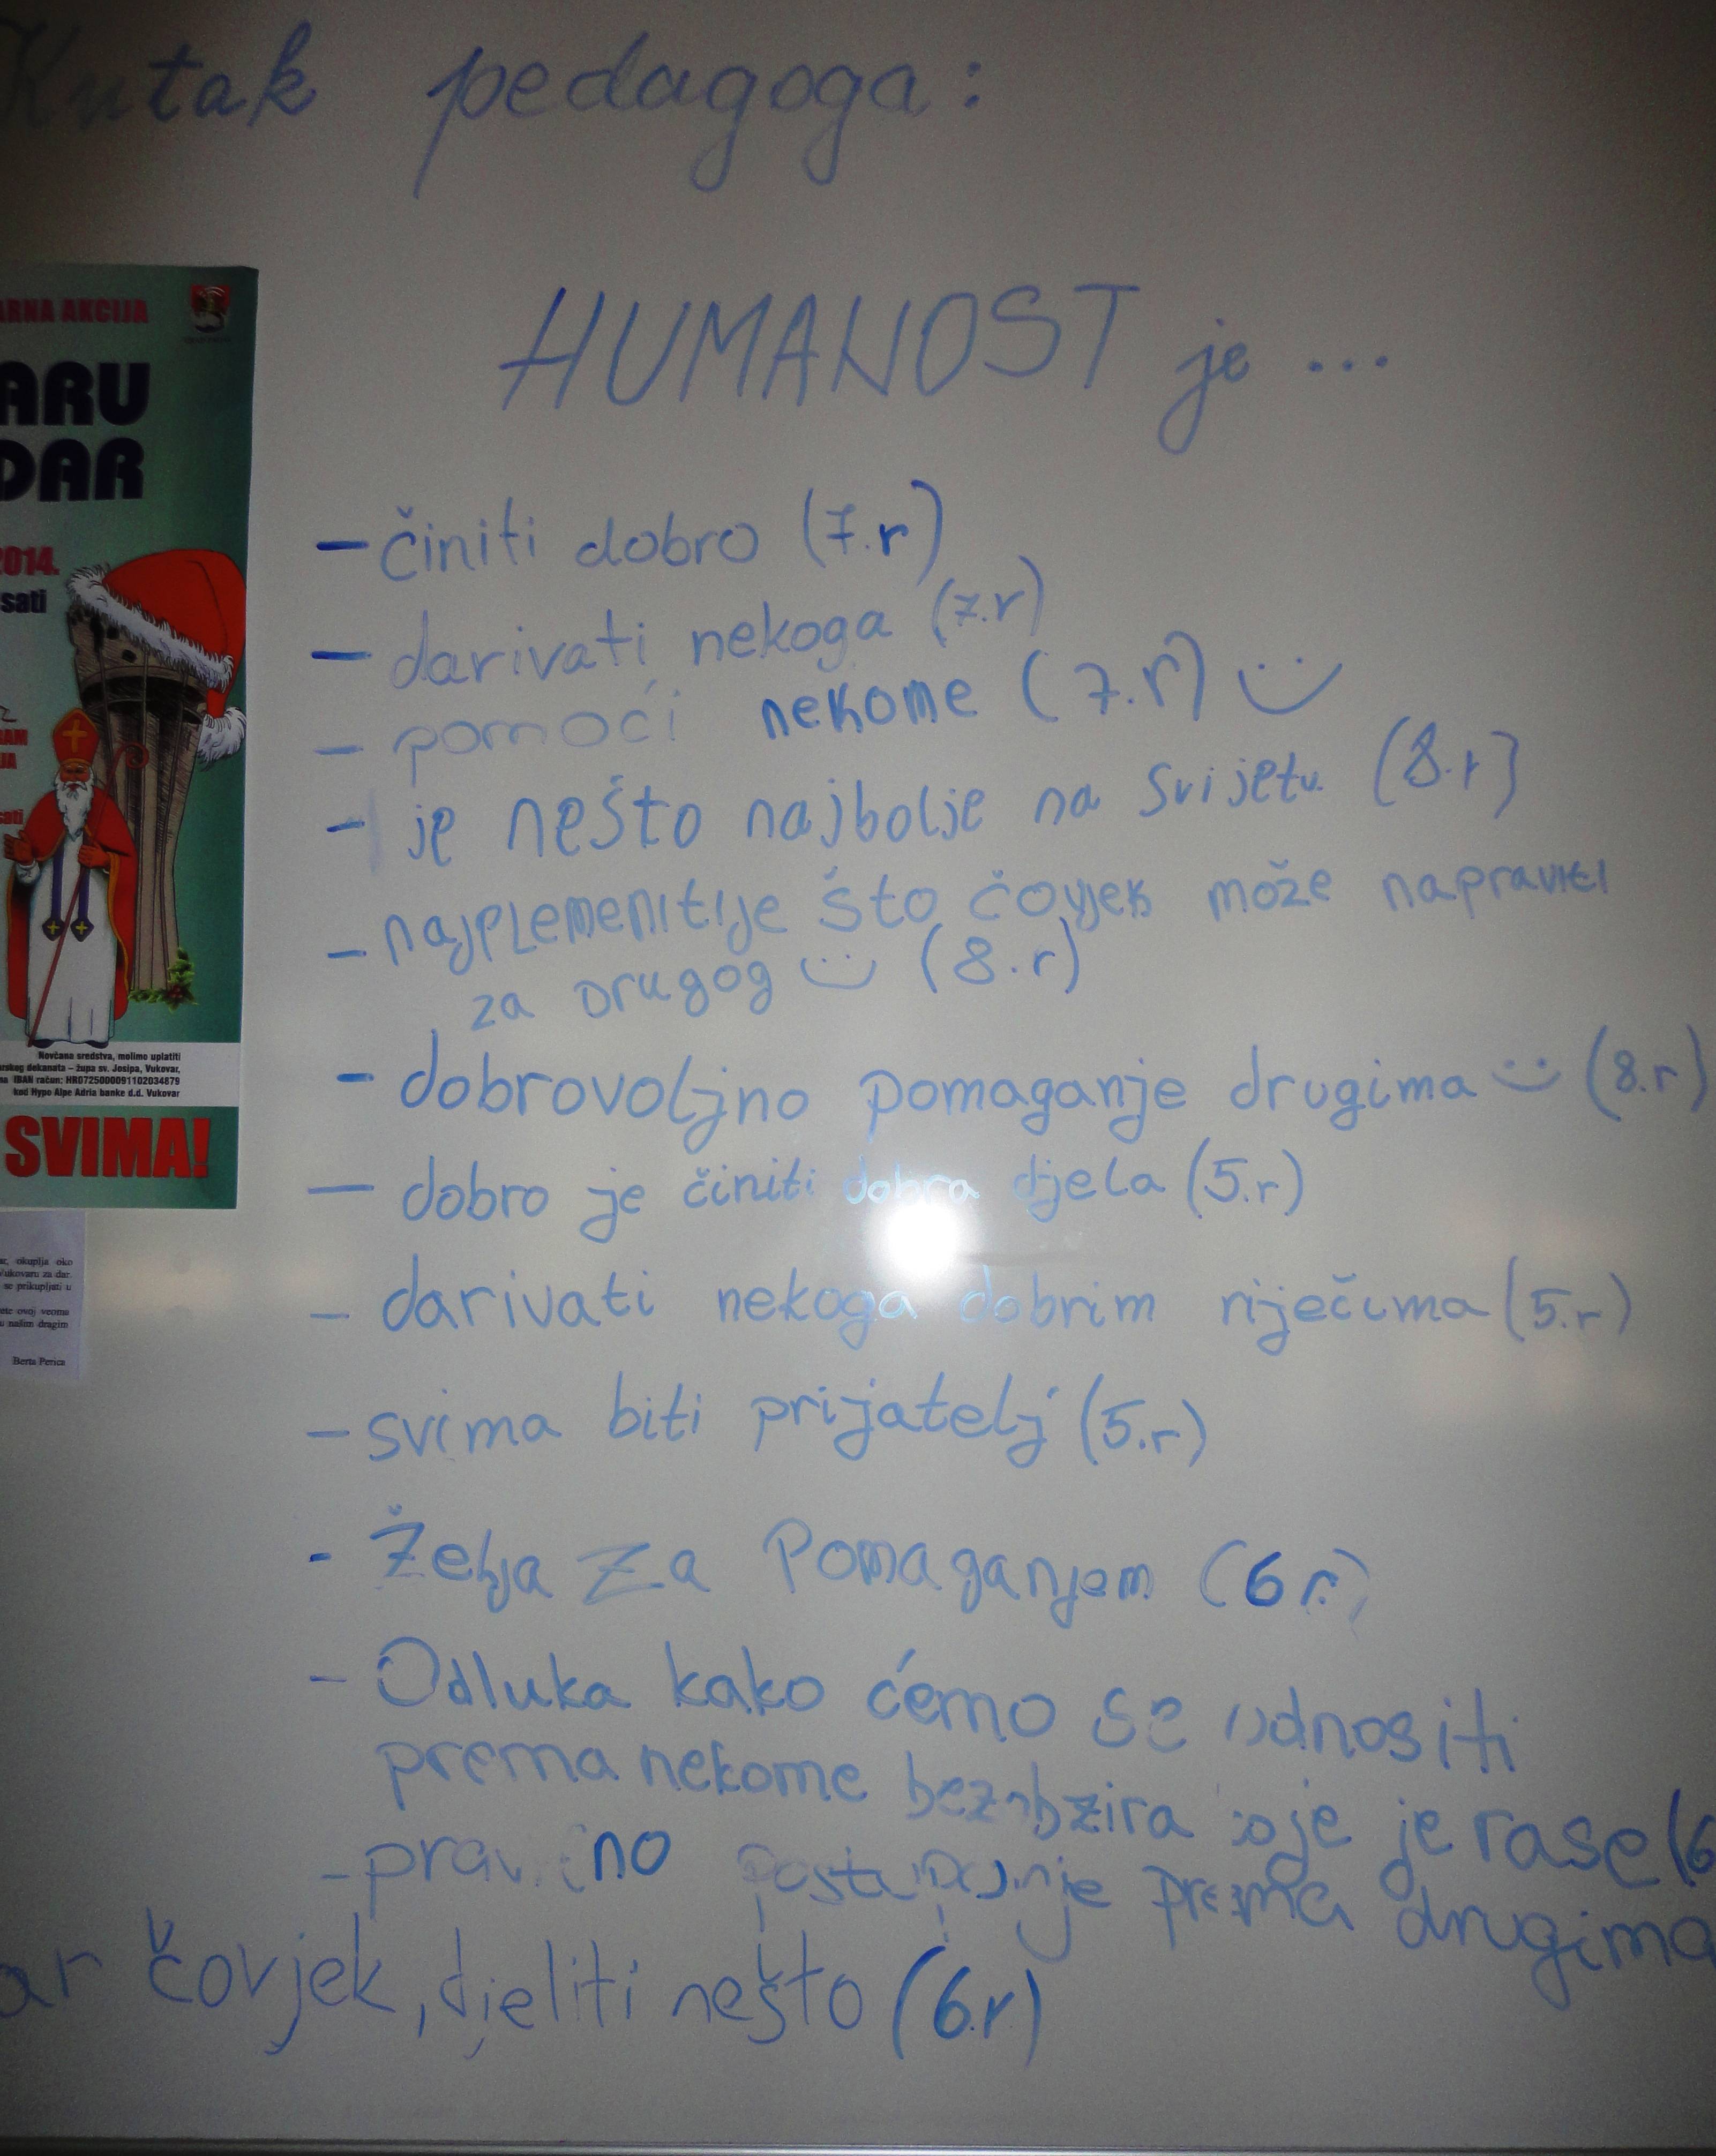 Kutak pedagoga:
ARNA AKCIJA
ARU
DAR
2014.
sati
AM
JA
sati
Novčana sredstva, molimo uplatiti
rskog dekanata – župa sv. Josipa, Vukovar,
na IBAN račun: HR0725000091102034879
kod Hypo Alpe Adria banke d.d. Vukovar
SVIMA!
ar, okuplja oko
Vukovaru za dar.
se prikupljati u
ete ovoj veoma
u našim dragim
Berta Perica
HUMANOST je ...
– činiti dobro (7.r)
– darivati nekoga (7.r)
– pomoći nekome (7.r)
– je nešto najbolje na svijetu (8.r)
– najplemenitije što čovjek može napraviti
za drugog (8.r)
– dobrovoljno pomaganje drugima (8.r)
– dobro je činiti dobra djela (5.r)
– darivati nekoga dobrim riječima (5.r)
– svima biti prijatelj (5.r)
- Želja za Pomaganjem (6 r.)
- Odluka kako ćemo se odnositi
prema nekome bez obzira koje je rase (6
- pravično postupanje prema drugima
ar čovjek, djeliti nešto (6.r)